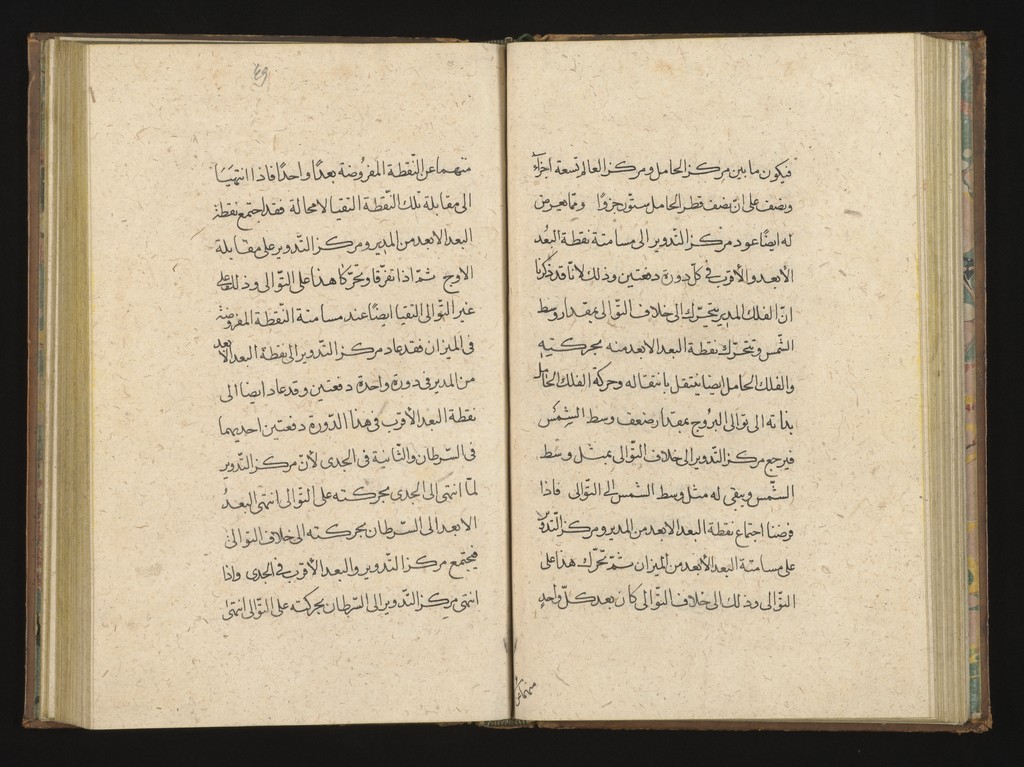 فيكون ما بين مركز الحامل ومركز العالم تسعة اجزاء
ونصف على انّ نصف قطر الحامل ستّون جزوًا وممّا يعرض
له ايضًا عود مركز التّدوير الى مسامتة نقطة البُعد
الأبعد والأقرب فى كلّ دورة دفعتين وذلك لانّا قد ذكرنا
انّ الفلك المدير يتحرّك الى خلاف التّوالى بمقدار وسط
الشّمس وتتحرّك نقطة البعد الابعد منه بحركتيه
والفلك الحامل ايضا ينتقل بانتقاله وحركة الفلك الحامل
بذاته الى توالى البرُوج بمقدار ضعف وسط الشمس
فيرجع مركز التّدوير الى خلاف التّوالى بمثل وسط
الشّمس ويبقى له مثل وسط الشمس الى التوالى فاذا
فرضنا اجتماع نقطة البعد الابعد من المدير ومركز التّدوير
على مسامتة البعد الأبعد من الميزان ثمّ تحرّك هذا على
التّوالى وذلك الى خلاف التوالى كان بعد كلّ واحدٍ
منهما عن
٤٩
منهما عن النّقطة المفرُوضة بعدًا واحدًا فاذا انتهيَا
الى مقابلة تلك النّقطة التقيا لامحالة فقد اجتمع نقطة
البعد الابعد من المدير ومركز التّدوير على مقابلة
الاوج ثمّ اذا تفرّقا وتحرّكا هذا على التّوالى وذلك على
غير التّوالى التقيا ايضًا عند مسامتة النّقطة المفروضة
فى الميزان فقد عاد مركز التّدوير الى نقطة البعد الأبعد
من المدير فى دورة واحدة دفعتين وقد عاد ايضا الى
نقطة البعد الأقرب فى هذا الدّورة دفعتين احديهما
فى السّرطان والثّانية فى الجدى لأنّ مركز التّدوير
لمّا انتهى الى الجدى بحركته على التّوالى انتهى البعدُ
الابعد الى السّرطان بحركته الى خلاف التوالى
فيجتمع مركز التّدوير والبعد الأقرب فى الجدى واذا
انتهى مركز التّدوير الى السّرطان بحركته على التّوالى انتهى